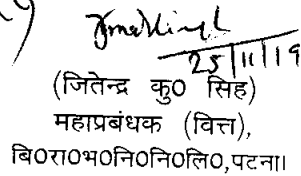 25/11/19
(जितेन्द्र कु० सिंह)
महाप्रबंधक (वित्त),
बि०रा०भ०नि०नि०लि०,पटना।